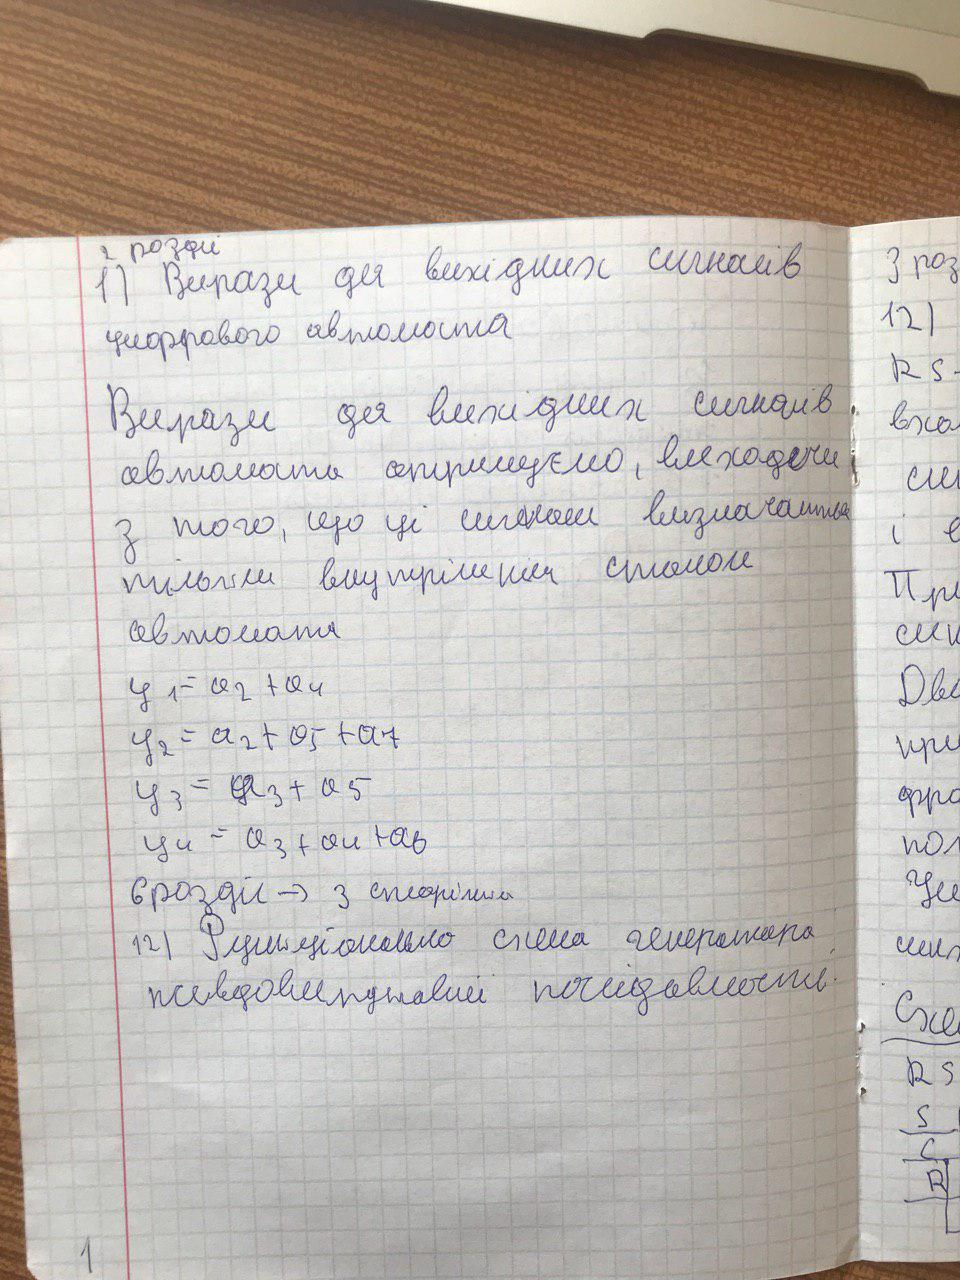 2 розділ
1) Вирази для вихідних сигналів
цифрового автомата
Вирази для вихідних сигналів
автомата отримуємо, виходячи
з того, що ці сигнали визначаються
тільки внутрішнім станом
автомата
y1 = a2 + a4
y2 = a2 + a5 + a7
y3 = a3 + a5
y4 = a3 + a4 + a6
6 розділ → 3 сторінка
12) Функціональна схема генератора
псевдовипадкової послідовності.
1
3 роз
12)
RS-
вхо
сиг
і в
Пр
сиг
Дво
при
фро
пол
Схе
RS
S
C
R